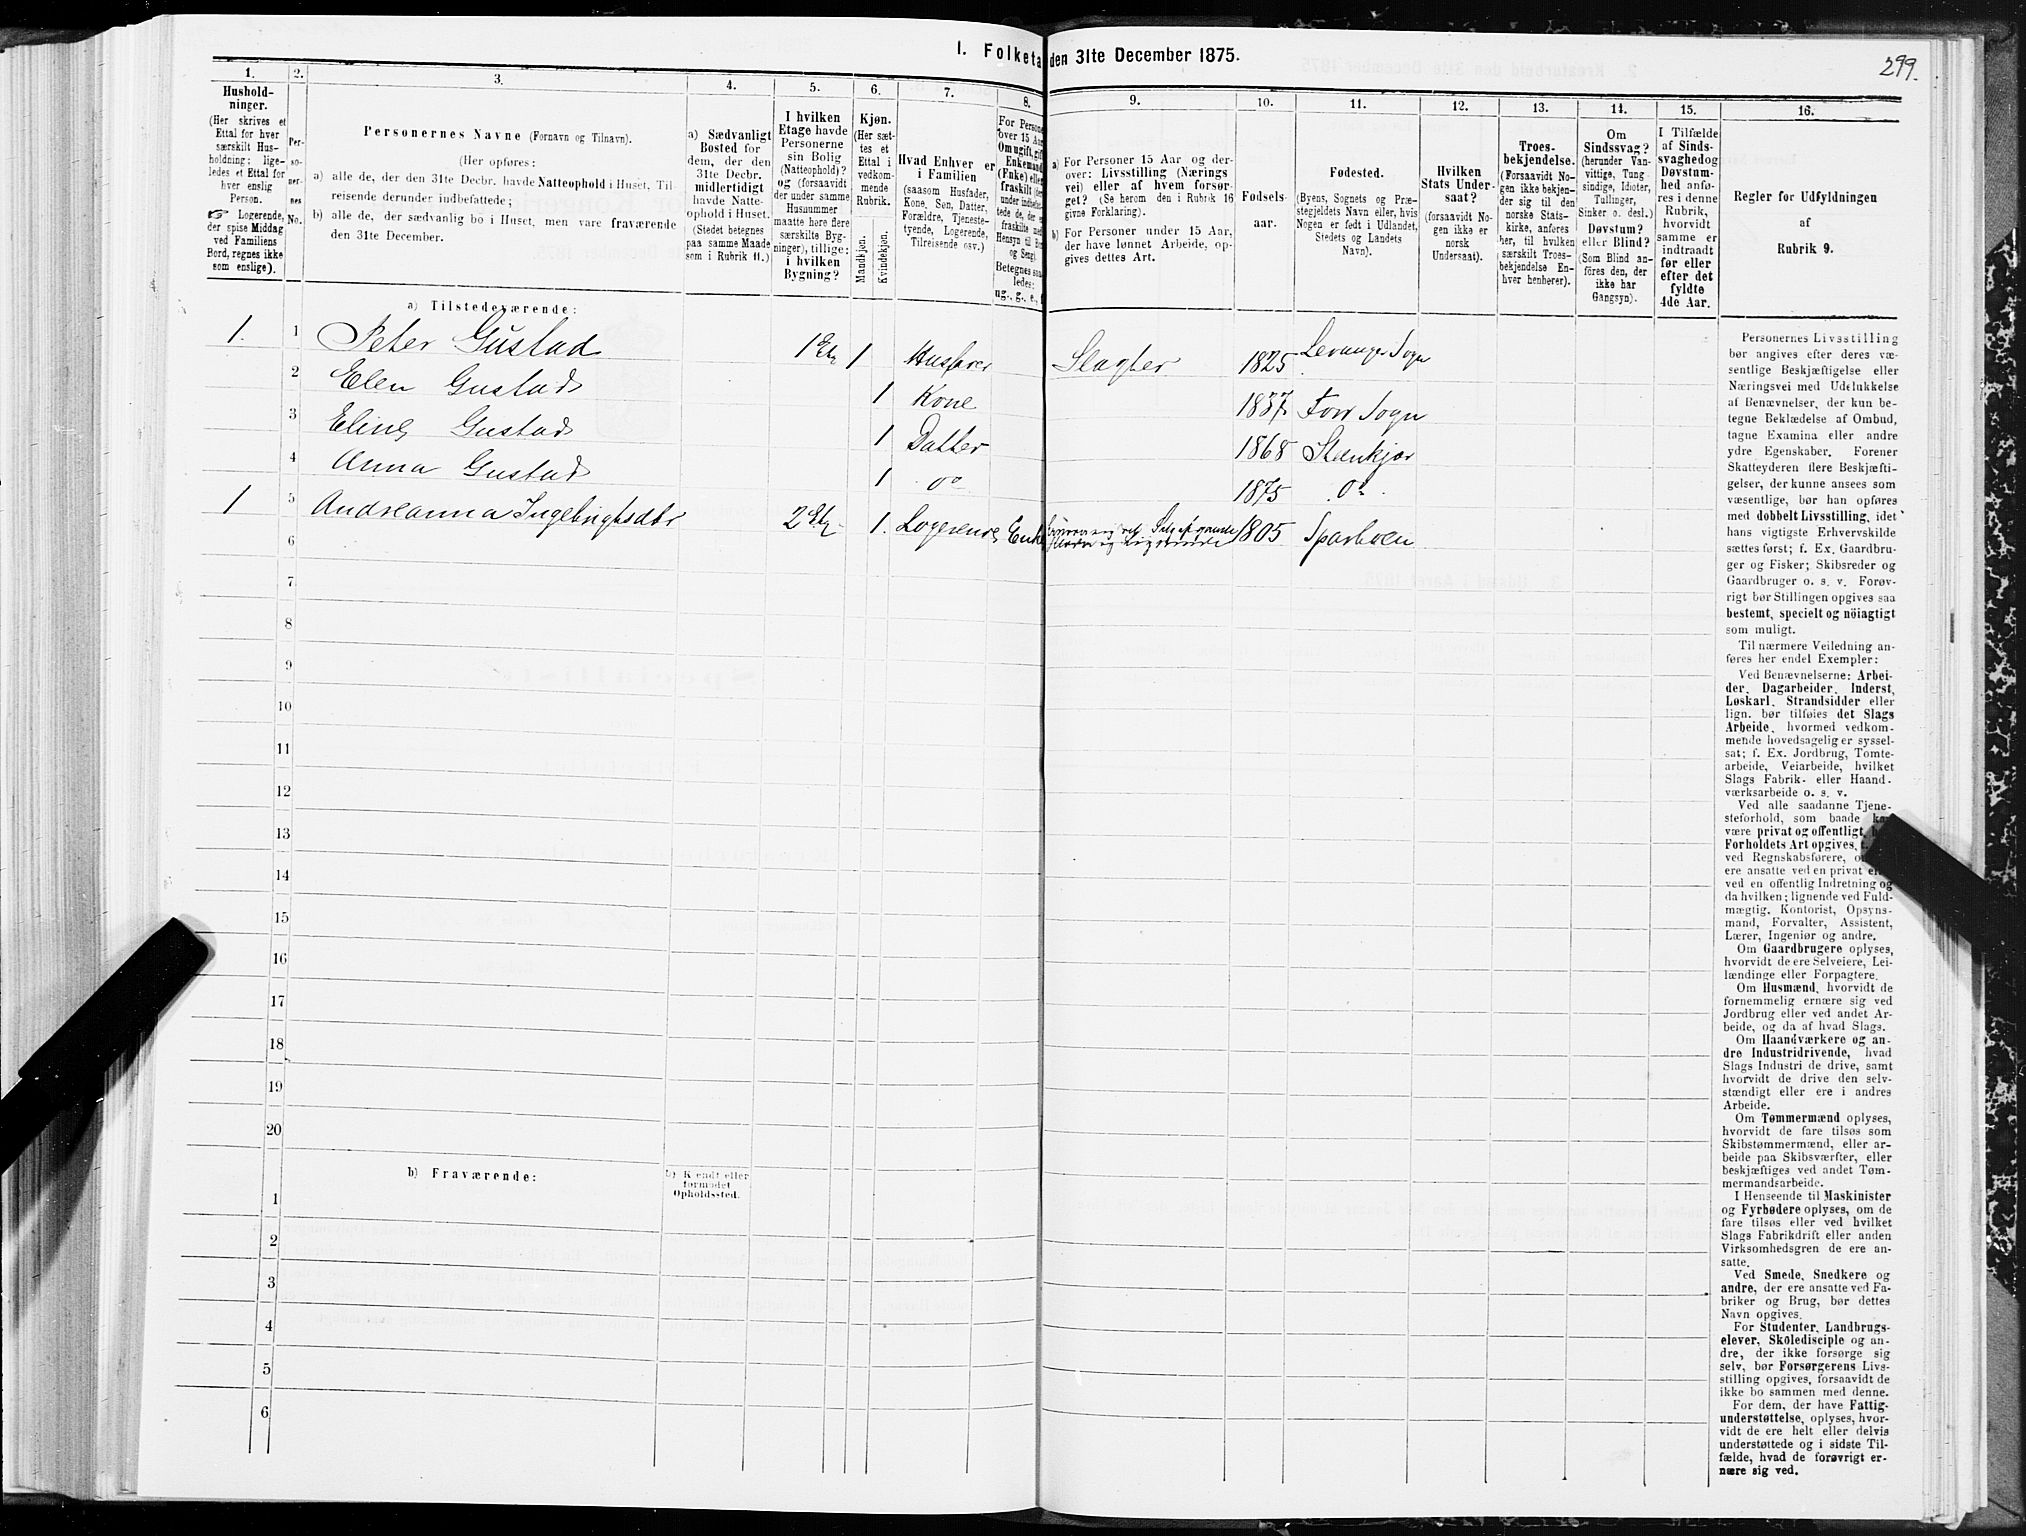 I. Folketa den 31te December 1875.
299.
1.
2.
3.
4.
5.
6.
7.
8.
9.
10.
11.
12.
13.
14.
15.
16.
Hushold-
ninger.
(Her skrives et
Ettal for hver
særskilt Hus-
holdning; lige-
ledes et Ettal for
hver enslig
Person.
☞ Logerende,
der spise Middag
ved Familiens
Bord, regnes ikke
som enslige).
Per-
so-
ner-
nes
No.
Personernes Navne (Fornavn og Tilnavn).
(Her opføres:
a) alle de, der den 31te Decbr. havde Natteophold i Huset, Til-
reisende derunder indbefattede;
b) alle de, der sædvanlig bo i Huset, men vare fraværende
den 31te December.
a) Sædvanligt
Bosted for
dem, der den
31te Decbr.
midlertidigt
havde Natte-
ophold i Huset.
(Stedet betegnes
paa samme Maade
som i Rubrik 11.)
I hvilken
Etage havde
Personerne
sin Bolig
(Natteophold)?
og (forsaavidt
der under samme
Husnummer
maatte høre flere
særskilte Byg-
ninger), tillige:
i hvilken
Bygning?
Kjøn.
(Her sæt-
tes et
Ettal i
vedkom-
mende
Rubrik.
Mandkjøn.
Kvindekjøn.
Hvad Enhver er
i Familien
(saasom Husfader,
Kone, Søn, Datter,
Forældre, Tjeneste-
tyende, Logerende,
Tilreisende osv.)
For Persone
over 15 Aar
Om ugift, gift
Enkemand
(Enke) elle
fraskilt (der
under indbefat-
tede de, der e
fraskilte med
Hensyn til Bo
og Seng).
Betegnes saa-
ledes:
ug., g., e., f
a) For Personer 15 Aar og der-
over: Livsstilling (Nærings
vei) eller af hvem forsør-
get? (Se herom den i Rubrik 16
givne Forklaring).
b) For Personer under 15 Aar,
der have lønnet Arbeide, op-
gives dettes Art.
Fødsels-
aar.
Fødested.
(Byens, Sognets og Præ-
stegjeldets Navn eller, hvis
Nogen er født i Udlandet,
Stedets og Landets
Navn).
Hvilken
Stats Under-
saat?
(forsaavidt No-
gen ikke er
norsk
Undersaat).
Troes-
bekjendelse.
(Forsaavidt No-
gen ikke bekjen-
der sig til den
norske Stats-
kirke, anføres
her, til hvilken
særskilt Troes-
bekjendelse En-
hver henhører).
Om
Sindssvag?
(herunder Van-
vittige, Tung
sindige, Idioter,
Tullinger,
Sinker o. desl.)
Døvstum?
eller Blind?
(Som Blind an-
føres den, der
ikke har
Gangsyn).
I Tilfælde
af Sinds-
svaghedog
Døvstum-
hed anfø-
res i denne
Rubrik,
hvorvidt
samme er
indtraadt
før eller
efter det
fyldte
4de Aar.
Regler for Udfyldningen
af
Rubrik 9.
a) Tilstedeværende:
1. 1 Peter Gustad 1 Etg 1 Husfader Slagter 1825 Levanger Sogn
2 Elen Gustad 1 Kone 1837 Forr Sogn
3 Eline Gustad 1 Datter 1868 Stenkjær
4 Anna Gustad 1 do 1875 Do.
1 5 Andreanna Ingebrigtsdtr 2 Etg 1. Logerende Enke 1805 Sparboen
6
7
8
9
10
11
12
13
14
15
16
17
18
19
20
b) Fraværende:
b) Kjendt eller
formodet
Opholdssted.
1
2
3
4
5
6
Personernes Livsstilling
bør angives efter deres væ-
sentlige Beskjæftigelse eller
Næringsvei med Udelukkelse
af Benævnelser, der kun be-
tegne Beklædelse af Ombud,
tagne Examina eller andre
ydre Egenskaber. Forener
Skatteyderen flere Beskjæfti-
gelser, der kunne ansees som
væsentlige, bør han opføres
med dobbelt Livsstilling, idet
hans vigtigste Erhvervskilde
sættes først; f. Ex. Gaardbru-
ger og Fisker; Skibsreder og
Gaardbruger o. s. v. Forøv-
rigt bør Stillingen opgives saa
bestemt, specielt og nöiagtigt
som muligt.
Til nærmere Veiledning an-
føres her endel Exempler:
Ved Benævnelserne: Arbei-
der, Dagarbeider, Inderst,
Løskarl, Strandsidder eller
lign. bør tilføies det Slags
Arbeide, hvormed vedkom-
mende hovedsagelig er syssel-
sat; f. Ex. Jordbrug, Tomte-
arbeide, Veiarbeide, hvilket
Slags Fabrik- eller Haand-
værksarbeide o. s. v.
Ved alle saadanne Tjene-
steforhold, som baade kan
være privat og offentligt,
Forholdets Art opgives,
ved Regnskabsførere,
ere ansatte ved en privat
ved en offentlig Indretning og
da hvilken; lignende ved Fuld-
mægtig, Kontorist, Opsyns-
mand, Forvalter, Assistent,
Lærer, Ingeniør og andre.
Om Gaardbrugere oplyses,
hvorvidt de ere Selveiere, Lei-
lændinge eller Forpagtere.
Om Husmænd, hvorvidt de
fornemmelig ernære sig ved
Jordbrug eller ved andet Ar-
beide, og da af hvad Slags.
Om Haandværkere og an-
dre Industridrivende, hvad
Slags Industri de drive, samt
hvorvidt de drive den selv-
stændigt eller ere i andres
Arbeide.
Om Tømmermænd oplyses,
hvorvidt de fare tilsøs som
Skibstømmermænd, eller ar-
beide paa Skibsværfter, eller
beskjæftiges ved andet Tøm-
mermandsarbeide.
I Henseende til Maskinister
og Fyrbødere oplyses, om de
fare tilsøs eller ved hvilket
Slags Fabrikdrift eller anden
Virksomhedsgren de ere an-
satte.
Ved Smede, Snedkere og
andre, der ere ansatte ved Fa-
briker og Brug, bør dettes
Navn opgives.
For Studenter, Landbrugs-
elever, Skoledisciple og an-
dre, der ikke forsørge sig
selv, bør Forsørgerens Livs-
stilling opgives, forsaavidt de
ikke bo sammen med denne.
For dem, der have Fattig-
understøttelse, oplyses, hvor-
vidt de ere helt eller delvis
understøttede og i sidste Til-
fælde, hvad de forøvrigt er-
nære sig ved.